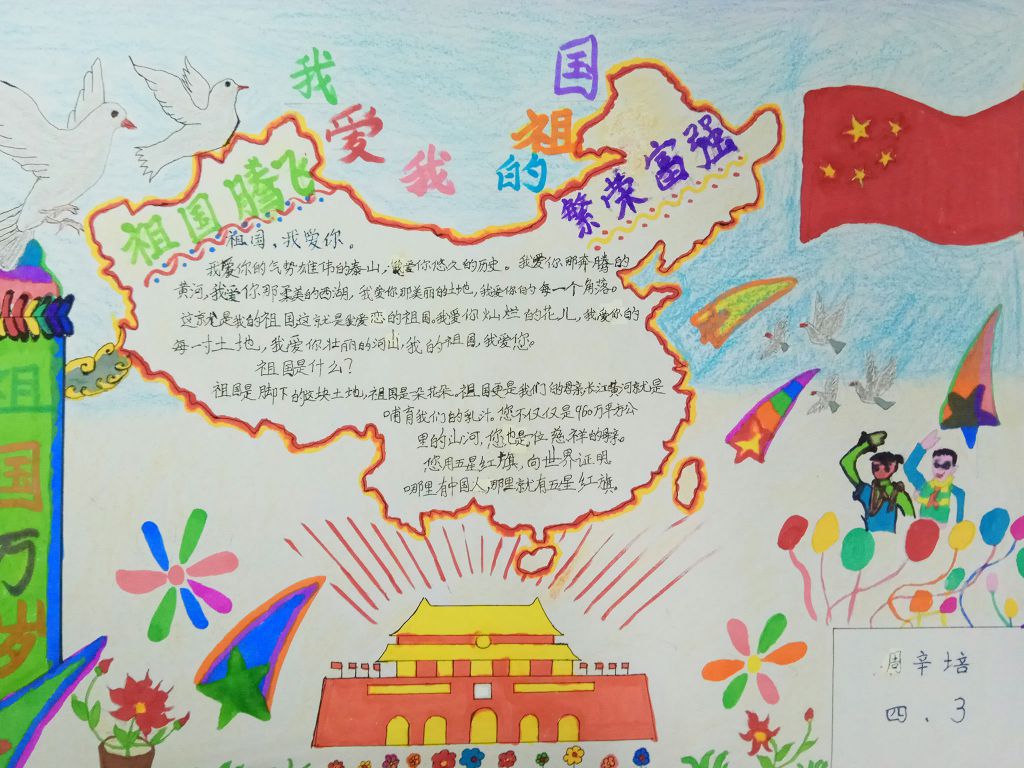 我爱我的祖国
祖国腾飞
繁荣富强
祖国,我爱你。
我爱你的气势雄伟的泰山,我爱你悠久的历史。我爱你那奔腾的
黄河,我爱你那柔美的西湖,我爱你那美丽的土地,我爱你的每一个角落。
这就是我的祖国这就是我爱恋的祖国。我爱你灿烂的花儿,我爱你的
每一寸土地,我爱你壮丽的河山,我的祖国,我爱您。
祖国是什么?
祖国是脚下的这块土地,祖国是朵花朵。祖国更是我们的母亲长江黄河就是
哺育我们的乳汁。您不仅仅是960万平方公
里的山河,您也是一位慈祥的母亲。
您用五星红旗,向世界证明
哪里有中国人,那里就有五星红旗。
祖国万岁
周辛培
四.3